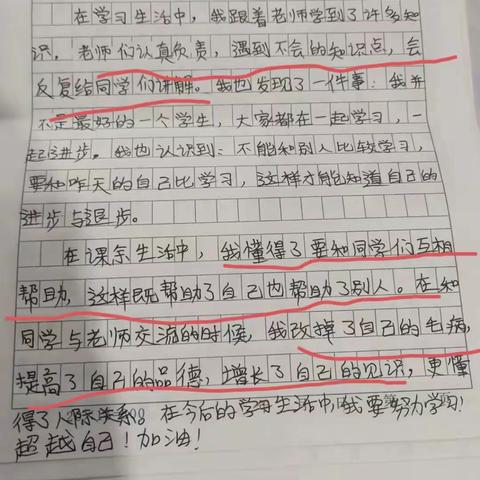 在学习生活中，我跟着老师学到了许多知
识，老师们认真负责，遇到不会的知识点，会
反复给同学们讲解。我也发现了一件事：我并
不是最好的一个学生，大家都在一起学习，一
起进步。我也认识到：不能和别人比较学习，
要和昨天的自己比学习，这样才能知道自己的
进步与退步。
在课余生活中，我懂得了要和同学们互相
帮助，这样既帮助了自己也帮助了别人。在和
同学与老师交流的时候，我改掉了自己的毛病，
提高了自己的品德，增长了自己的见识，更懂
得了人际关系。在今后的学习生活中，我要努力学习！
超越自己！加油！